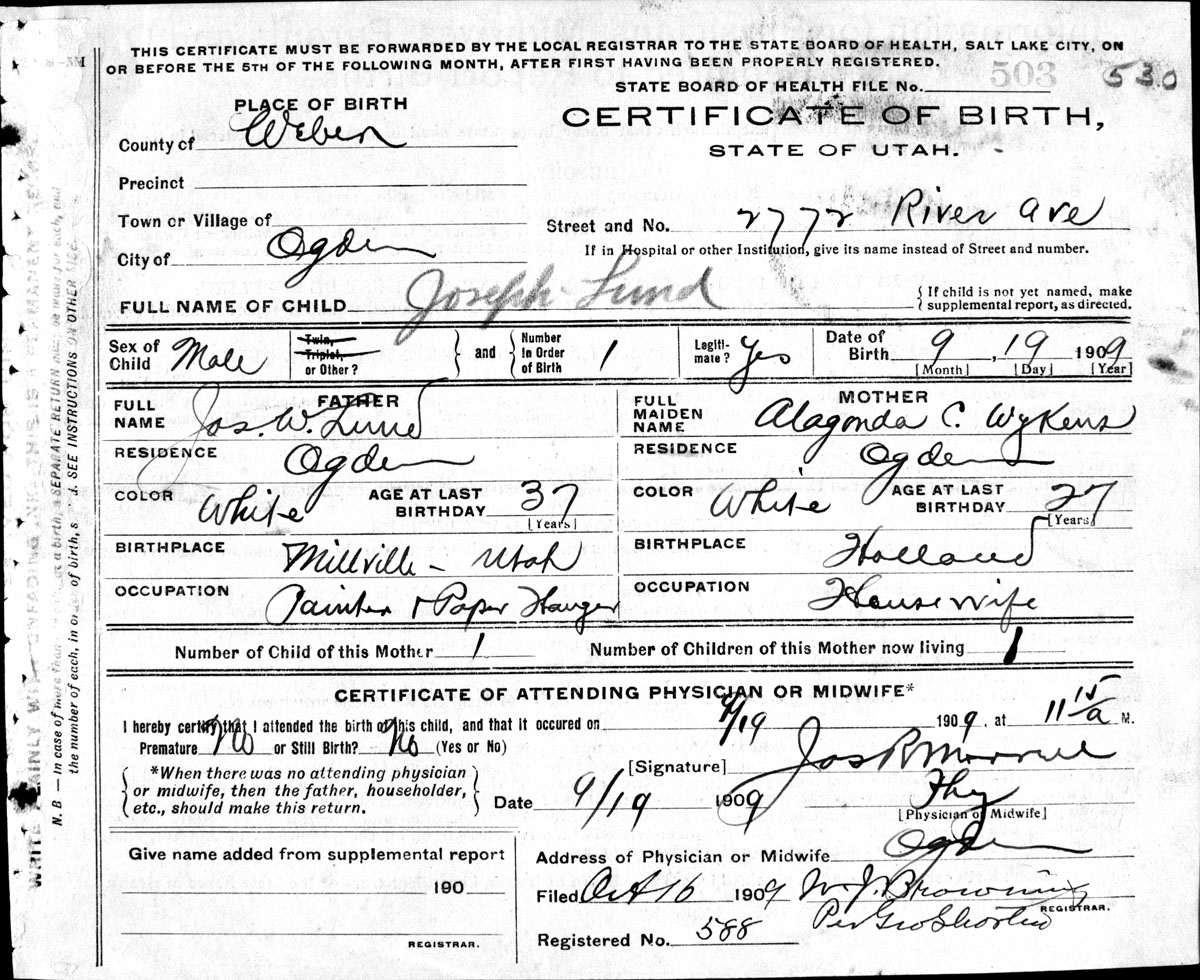 THIS CERTIFICATE MUST BE FORWARDED BY THE LOCAL REGISTRAR TO THE STATE BOARD OF HEALTH, SALT LAKE CITY, ON
OR BEFORE THE 5TH OF THE FOLLOWING MONTH, AFTER FIRST HAVING BEEN PROPERLY REGISTERED.
503 530
STATE BOARD OF HEALTH FILE No.
PLACE OF BIRTH
CERTIFICATE OF BIRTH,
STATE OF UTAH.
County of Weber
Precinct
Town or Village of
Street and No. 2772 River Ave
City of Ogden
If in Hospital or other Institution, give its name instead of Street and number.
FULL NAME OF CHILD Joseph Lund
If child is not yet named, make
supplemental report, as directed.
Sex of Child Male
Twin, Triplet, or Other?
and Number in Order of Birth 1
Legiti-mate? Yes
Date of Birth 9, 19 1909
[Month] [Day] [Year]
FATHER
FULL NAME Jos. W. Lund
RESIDENCE Ogden
COLOR White AGE AT LAST BIRTHDAY 37
[Years]
BIRTHPLACE Millville - Utah
OCCUPATION Painter & Paper Hanger
MOTHER
FULL MAIDEN NAME Alagonda C. Wykens
RESIDENCE Ogden
COLOR White AGE AT LAST BIRTHDAY 27
[Years]
BIRTHPLACE Holland
OCCUPATION Housewife
Number of Child of this Mother 1 Number of Children of this Mother now living 1
CERTIFICATE OF ATTENDING PHYSICIAN OR MIDWIFE*
I hereby certify that I attended the birth of this child, and that it occured on 9/19 1909, at 11 15 a M.
Premature No or Still Birth? No (Yes or No)
[Signature] Jas R Morrell
*When there was no attending physician
or midwife, then the father, householder,
etc., should make this return.
Date 9/19 1909 Phy
[Physician of Midwife]
Give name added from supplemental report
190
REGISTRAR.
Address of Physician or Midwife Ogden
Filed Oct 16 1909 W. J. Browning
REGISTRAR.
Per Geo
Registered No. 588
N. B — In case of more than
at a birth, a SEPARATE RETURN must be made for each, and
the number of each, in order of birth, s
d. SEE INSTRUCTIONS ON OTHER SIDE.